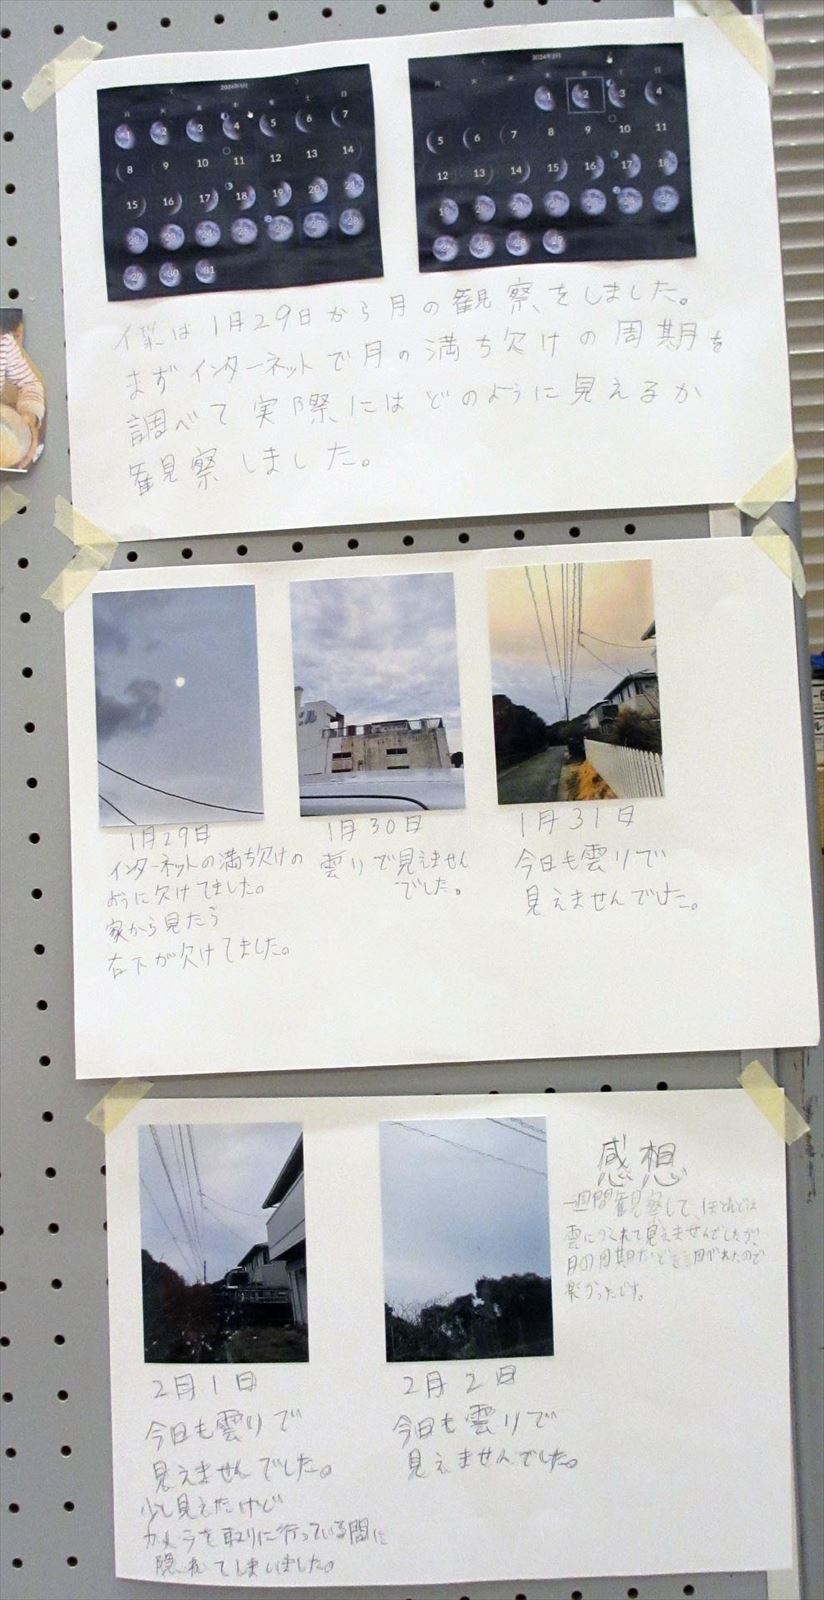 2024年1月
月 火 水 木 金 土 日
1 2 3 4 5 6 7
8 9 10 11 12 13 14
15 16 17 18 19 20 21
22 23 24 25 26 27 28
29 30 31
2024年2月
月 火 水 木 金 土 日
1 2 3 4
5 6 7 8 9 10 11
12 13 14 15 16 17 18
19 20 21 22 23 24 25
26 27 28 29
僕は1月29日から月の観察をしました。
まずインターネットで月の満ち欠けの周期を
調べて実際にはどのように見えるか
観察しました。
ビル
1月29日
インターネットの満ち欠けの
ように欠けてました。
家から見たら
右下が欠けてました。
1月30日
曇りで見えません
でした。
1月31日
今日も曇りで
見えませんでした。
2月1日
今日も曇りで
見えませんでした。
少し見えたけど
カメラを取りに行っている間に
隠れてしまいました。
2月2日
今日も曇りで
見えませんでした。
感想
一週間観察して、ほとんどは
雲にかくれて見えませんでしたが、
月の周期などを調べれたので
楽かったです。